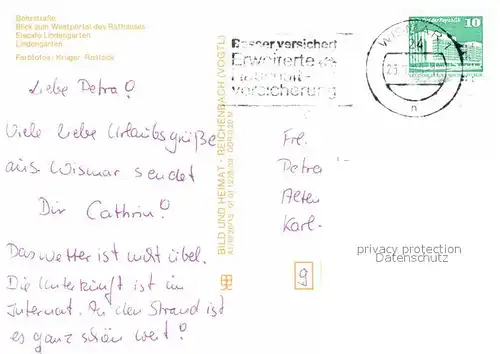 Blick zum Westportal des Rathauses
Eiscafe Lindengarten
Lindengarten
Farbfotos: Krüger, Rostock
Liebe Petra!
Viele liebe Urlaubsgrüße
aus Wismar sendet
Dir Cathrin!
Das Wetter ist nicht übel.
Die Unterkunft ist im
Internat. An den Strand ist
es ganz schön weit!
BILD UND HEIMAT · REICHENBACH (VOGTL)
Besser versichert
Erweiterte
Haushalt-
versicherung
WISMAR
24
n
10
Frl.
Petra
Karl-
9
privacy protection
Datenschutz